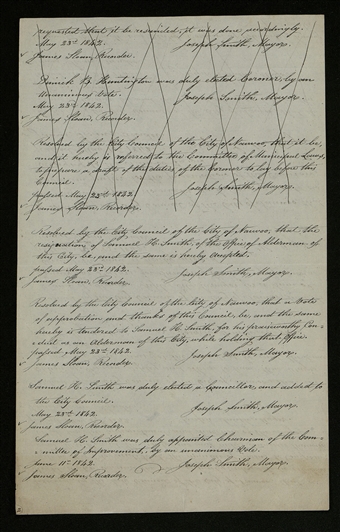 requested that it be rescinded, it was done, accordingly.
May 23d 1842. Joseph Smith, Mayor.
James Sloan, Recorder.
Dimick B. Huntington was duly elected Coroner, by an
unanimous Vote.
May 23d 1842. Joseph Smith, Mayor.
James Sloan, Recorder.
Resolved by the City Council of the City of Nauvoo, that it be,
and it hereby is referred to the Committee of Municipal Laws,
to prepare a draft of the duties of the Coroner to lay before this
Council.
passed May 23d 1842. Joseph Smith, Mayor.
James Sloan, Recorder.
Resolved by the City Council of the City of Nauvoo, that the
resignation of Samuel H. Smith, of the Office of Alderman of
this City, be, and the same is hereby accepted.
passed May 23d 1842. Joseph Smith, Mayor.
James Sloan, Recorder.
Resolved by the City Council of the City of Nauvoo, that a Vote
of approbation and thanks of this Council, be, and the same
hereby is tendered to Samuel H. Smith, for his praiseworthy Con-
duct as an Alderman of this City, while holding that Office.
passed May 23d 1842. Joseph Smith, Mayor.
James Sloan, Recorder.
Samuel H. Smith was duly elected a Councillor, and added to
the City Council.
May 23d 1842. Joseph Smith, Mayor.
James Sloan, Recorder.
Samuel H. Smith was duly appointed Chairman of the Com-
mittee of Improvement, by an unanimous Vote.
June 11th 1842. Joseph Smith, Mayor.
James Sloan, Recorder.